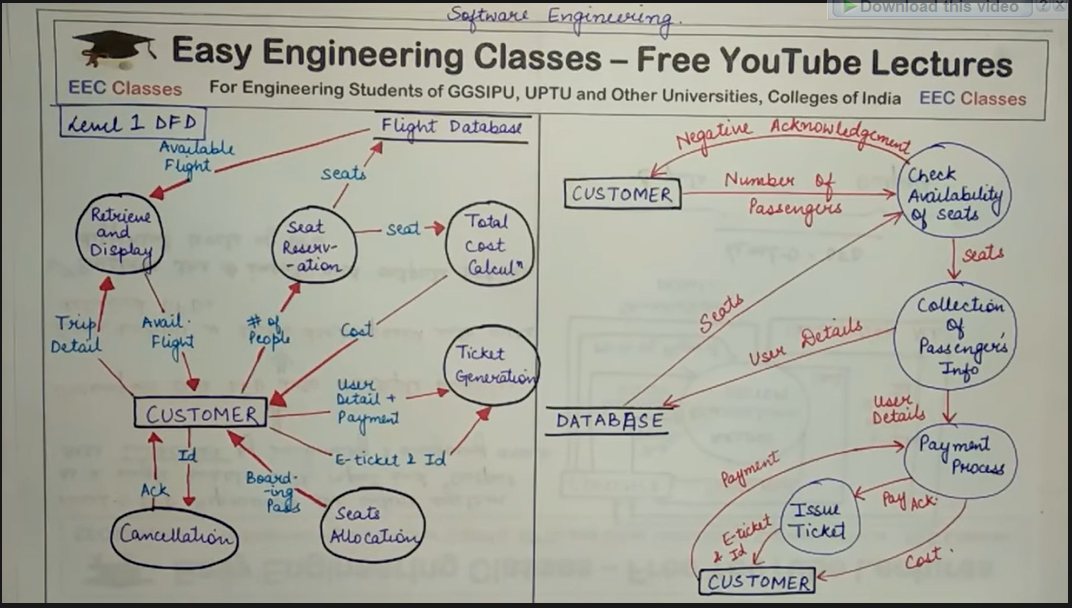 Software Engineering.
Download this video
Easy Engineering Classes – Free YouTube Lectures
EEC Classes For Engineering Students of GGSIPU, UPTU and Other Universities, Colleges of India EEC Classes
Level 1 DFD
Flight Database
Available
Flight
seats
Retrieve
and
Display
Seat
Reserv-
-ation
seat
Total
Cost
Calculⁿ
Trip
Detail
Avail.
Flight
# of
People
Cost
Ticket
Generation
User
Detail +
Payment
CUSTOMER
E-ticket & Id
Id
Ack
Board-
-ing
Pass
Cancellation
Seats
Allocation
Negative Acknowledgement
CUSTOMER
Number of
Passengers
Check
Availability
of seats
seats
Seats
Collection
of
Passenger's
Info
User Details
DATABASE
User
Details
Payment
Process
Payment
Pay Ack.
Issue
Ticket
E-ticket
& Id
Cost.
CUSTOMER